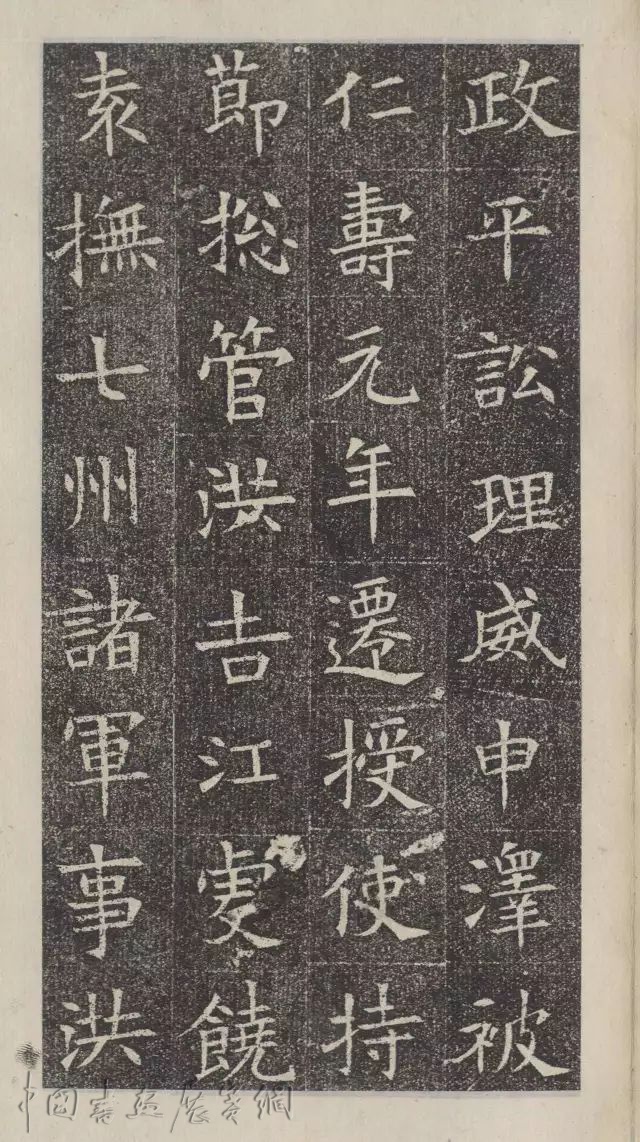 政平訟理威申澤被
仁壽元年遷授使持
節揔管洪吉江虔饒
袁撫七州諸軍事洪
中国书法展赛网